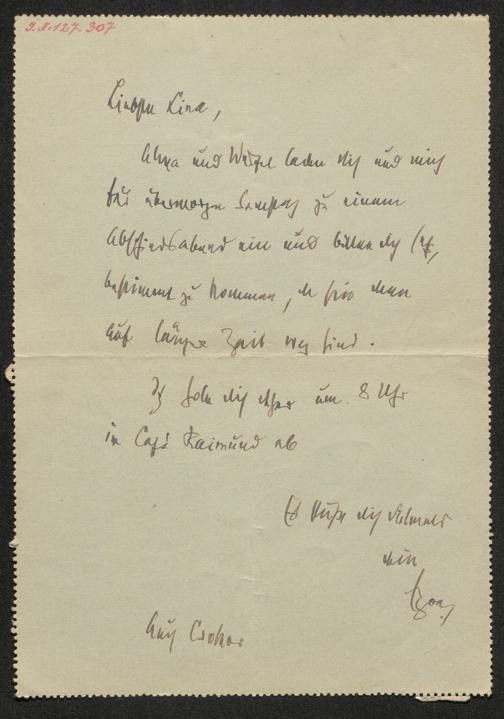 I.N.127.307
Liebste Lina,
Alma und Werfel laden dich und mich
für übermorgen Samstag zu einem
Abschiedsabend ein und bitten dich sehr,
bestimmt zu kommen, da sie dann
auf längere Zeit weg sind.
Ich hole dich daher um 8 Uhr
in Café Raimund ab
Es küsst dich vielmals
dein
Egon
Auch Csokor